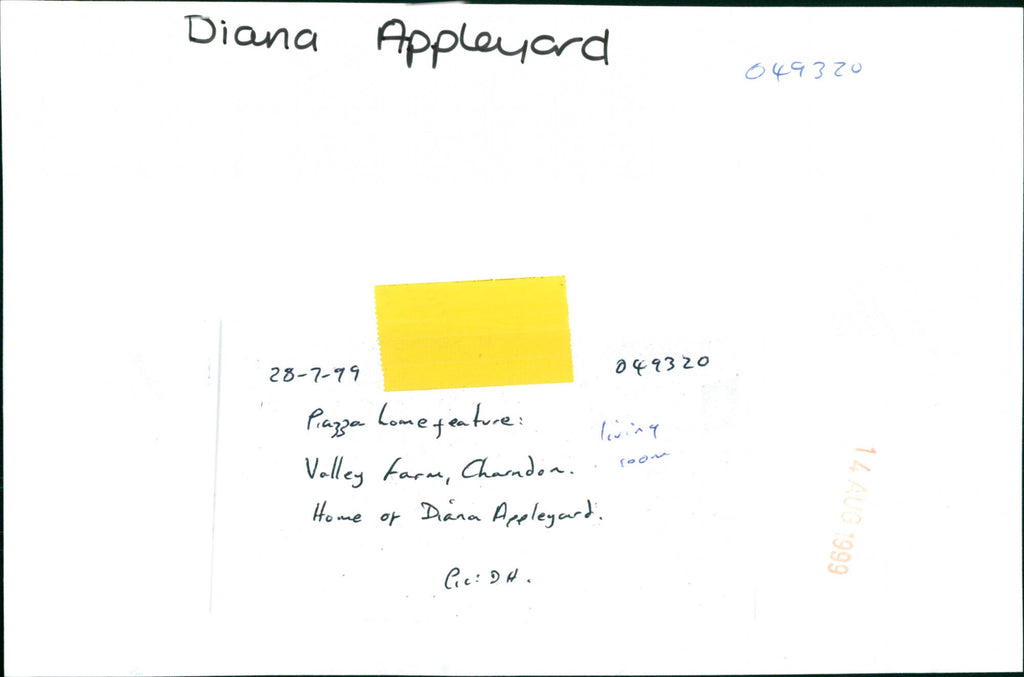 Diana Appleyard
049320
28-7-99
049320
Piazza home feature:
living
room
Valley Farm, Charndon.
Home of Diana Appleyard.
Pic: DH.
14 AUG 1999